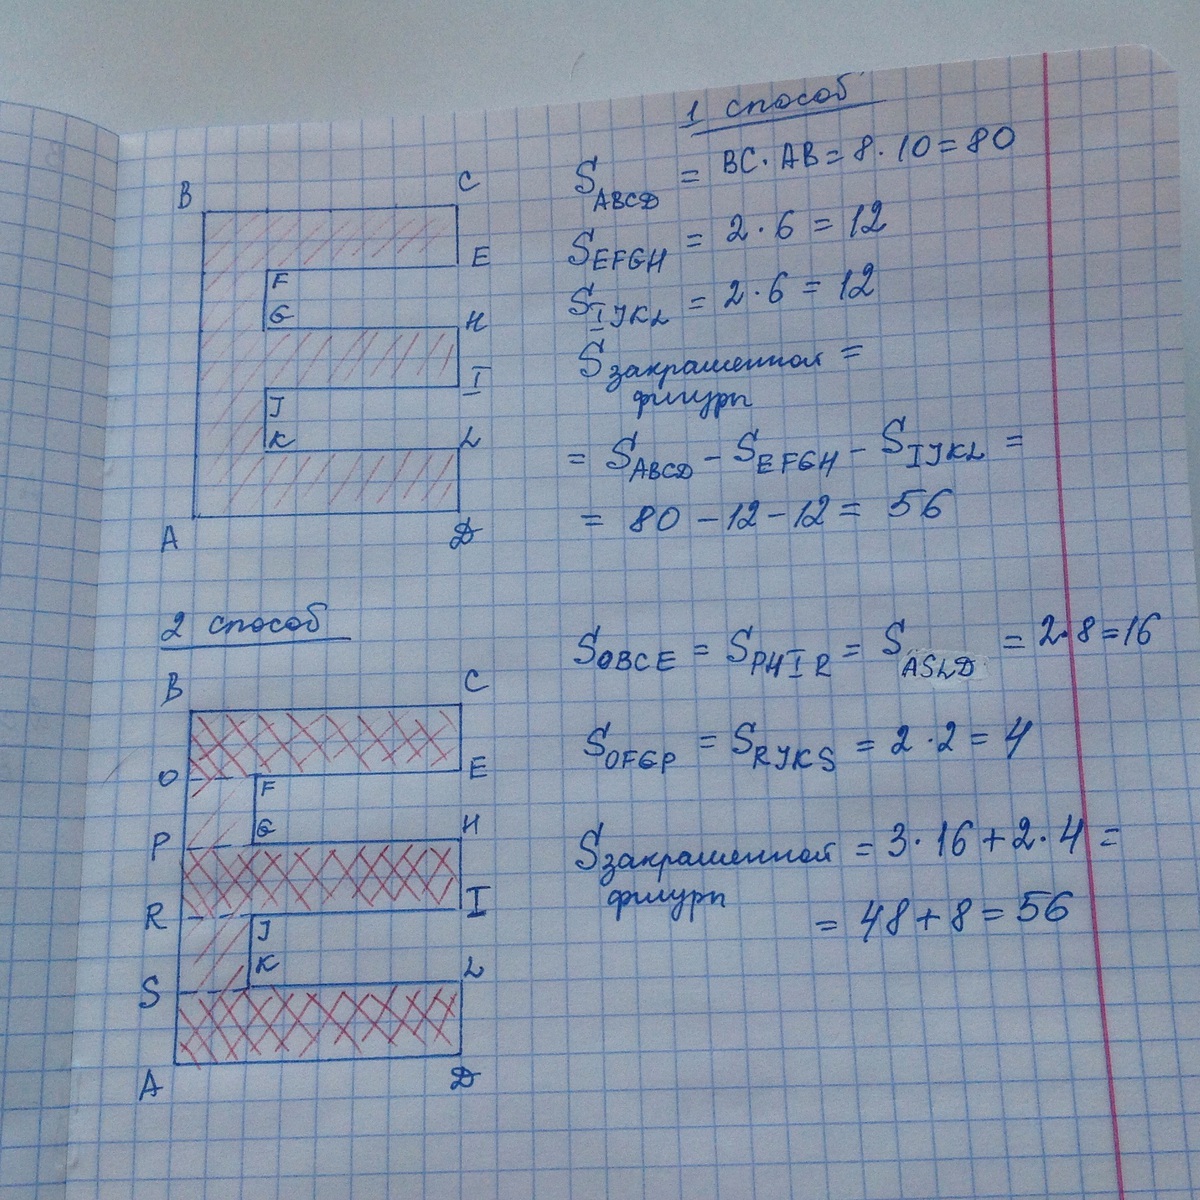 1 способ
S ABCD = BC · AB = 8 · 10 = 80
S EFGH = 2 · 6 = 12
S IJKL = 2 · 6 = 12
S закрашенной =
фигуры
= S ABCD - S EFGH - S IJKL =
= 80 - 12 - 12 = 56
B C
E
F
G H
I
J
K L
A D
2 способ
S OBCE = S PHIR = S ASLD = 2 · 8 = 16
S OFGP = S RJKS = 2 · 2 = 4
S закрашенной = 3 · 16 + 2 · 4 =
фигуры
= 48 + 8 = 56
B C
O E
F
P G H
R I
J
S K L
A D